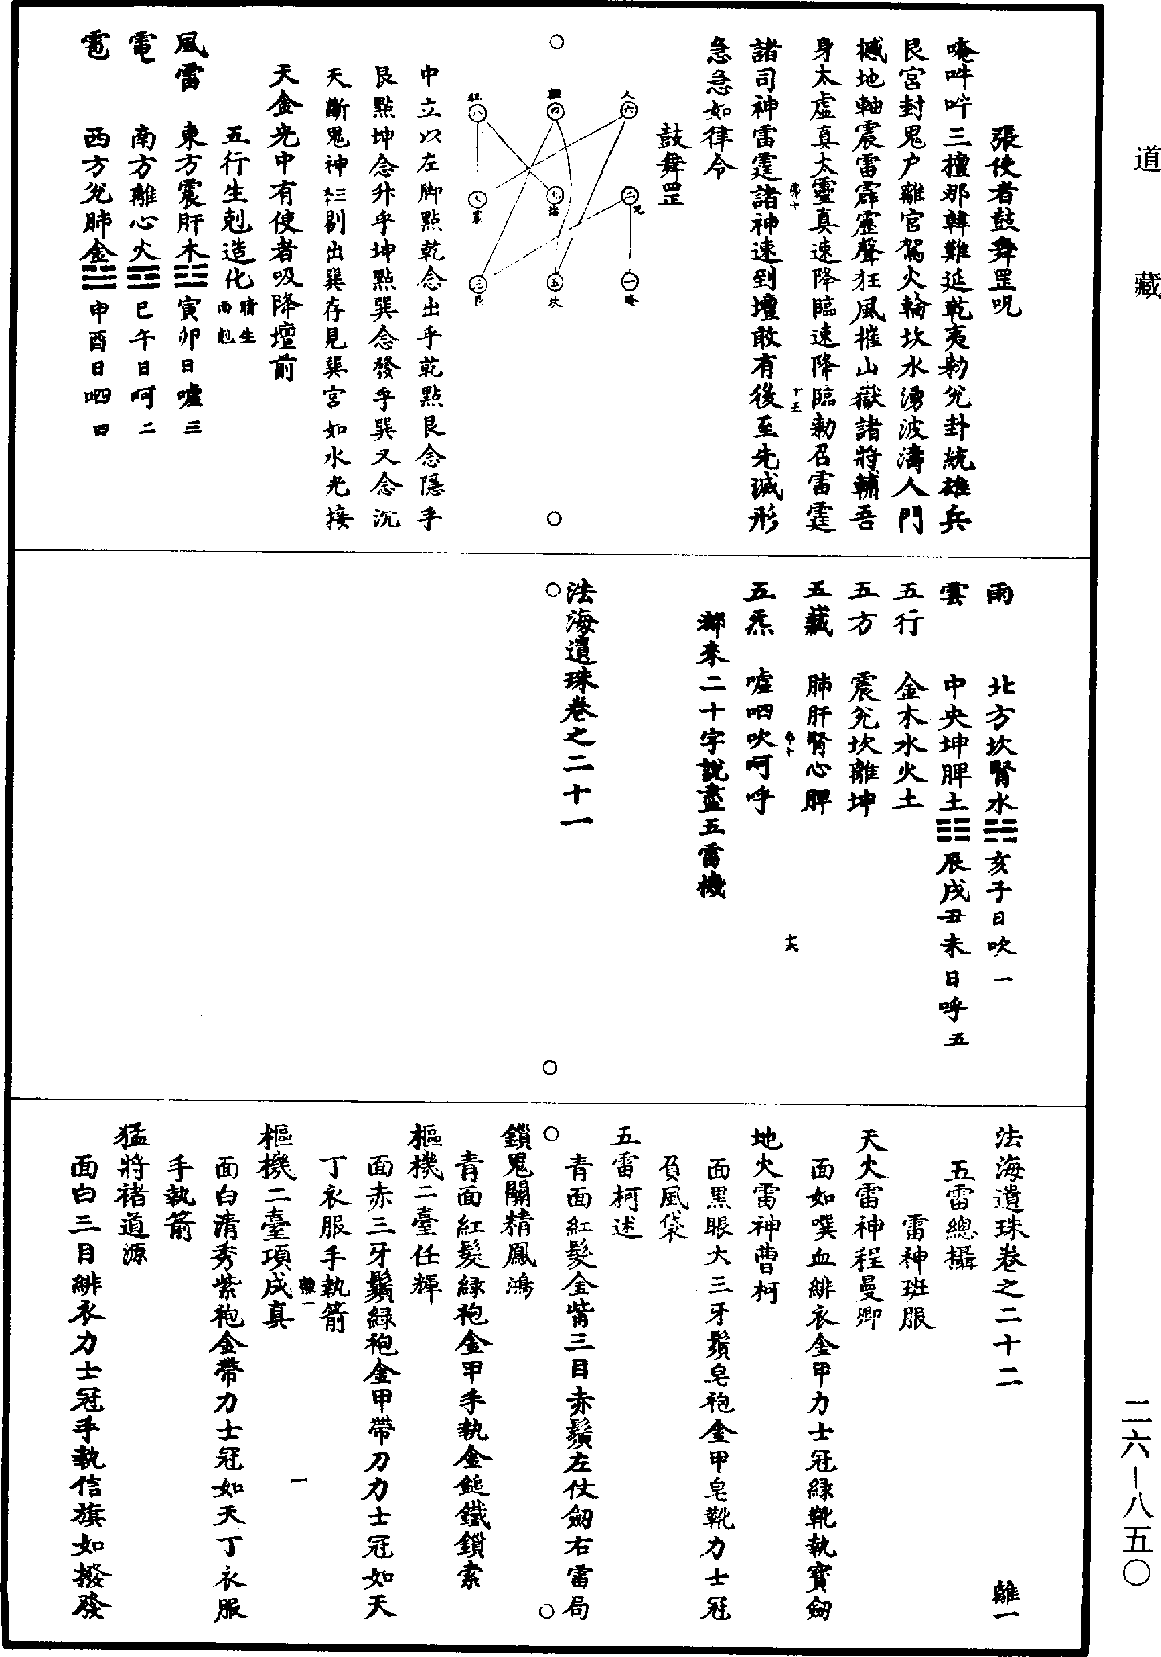 道藏
張使者鼓舞罡呪
唵吽吽三檀那韓難延乾夷勑兊卦統雄兵
艮宮封鬼户離宮駕火輪坎水湧波濤人門
撼地軸震雷霹靂聲狂風摧山嶽諸將輔吾
身太虛真太靈真速降臨速降臨勑召雷霆
諸司神雷霆諸神速到壇敢有後至先滅形
急急如律令
鼓舞罡
中立以左脚點乾念出乎乾點艮念隱乎
艮點坤念升乎坤點巽念發乎巽又念沉
天斷鬼神剔出巽存見巽宮如水光接
天金光中有使者吸降壇前
五行生剋造化
風雷 東方震肝木☳寅卯日噓三
電 南方離心火☲巳午日呵二
雹 西方兊肺金☱申酉日呬四
雨 北方坎腎水☵亥子日吹一
雲 中央坤脾土☷辰戌丑未日呼五
五行 金木水火土
五方 震兊坎離坤
五藏 肺肝腎心脾
五炁 噓呬吹呵呼
都來二十字說盡五雷機
十六
法海遺珠卷之二十一
法海遺珠卷之二十二 離一
五雷總攝
雷神班服
天火雷神程曼卿
面如噀血緋衣金甲力士冠綠靴執寶劒
地火雷神曹柯
面黑眼大三牙鬚皂袍金甲皂靴力士冠
負風袋
五雷柯述
青面紅髮金觜三目赤鬚左仗劒右雷局
鎖鬼關精鳳鴻
青面紅髮綠袍金甲手執金鎚鐵鎖索
樞機二臺任輝
面赤三牙鬚綠袍金甲帶刀力士冠如天
丁衣服手執箭
樞機二臺項成真
面白清秀紫袍金帶力士冠如天丁衣服
手執箭
猛將褚道源
面白三目緋衣力士冠手執信旗如撥發
二六－八五〇